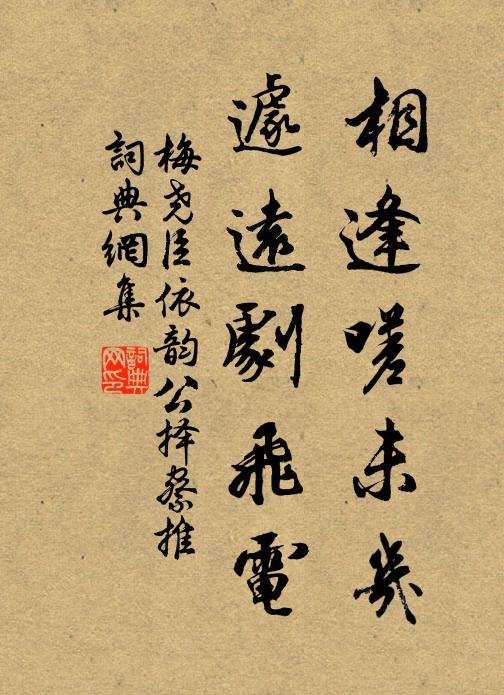 相逢嗟未幾
遽遠劇飛電
梅堯臣依韵公择察推
詞典網集
詞典网印